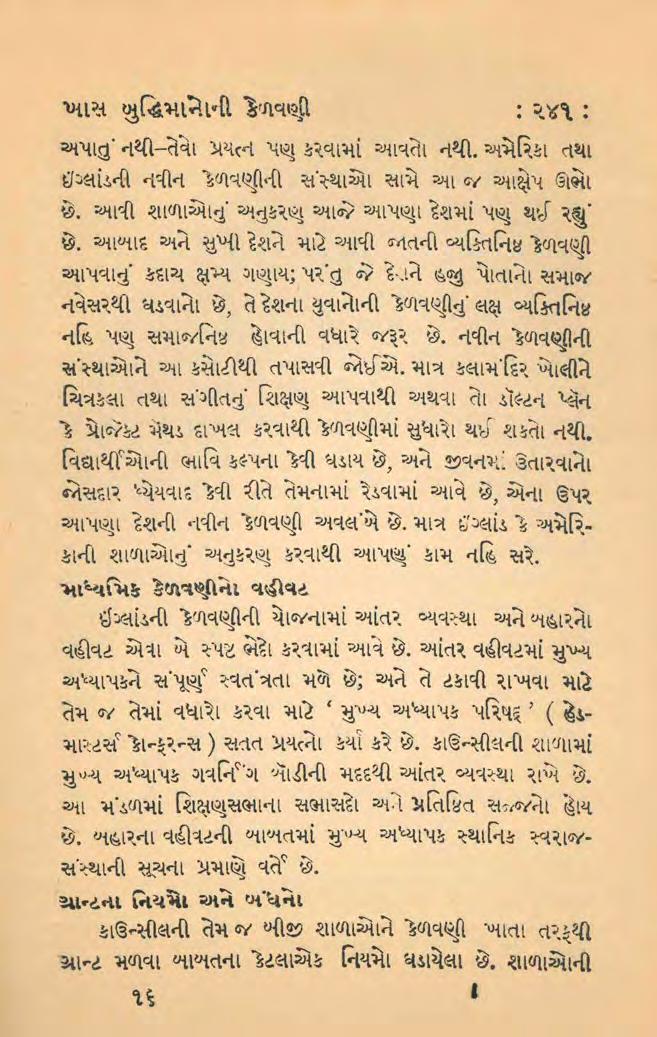 ખાસ બુદ્ધિમાનોની કેળવણી : ૨૪૧ :
અપાતું નથી–તેવો પ્રયત્ન પણ કરવામાં આવતો નથી. અમેરિકા તથા
ઇંગ્લાંડની નવીન કેળવણીની સંસ્થાઓ સામે આ જ આક્ષેપ ઊભો
છે. આવી શાળાઓનું અનુકરણ આજે આપણા દેશમાં પણ થઈ રહ્યું
છે. આબાદ અને સુખી દેશને માટે આવી જાતની વ્યક્તિનિષ્ઠ કેળવણી
આપવાનું કદાચ ક્ષમ્ય ગણાય; પરંતુ જે દેશને હજી પોતાનો સમાજ
નવેસરથી ઘડવાનો છે, તે દેશના યુવાનોની કેળવણીનું લક્ષ વ્યક્તિનિષ્ઠ
નહિ પણ સમાજનિષ્ઠ હોવાની વધારે જરૂર છે. નવીન કેળવણીની
સંસ્થાઓને આ કસોટીથી તપાસવી જોઈએ. માત્ર કલામંદિર ખોલીને
ચિત્રકલા તથા સંગીતનું શિક્ષણ આપવાથી અથવા તો ડૉલ્ટન પ્લૅન
કે પ્રોજેક્ટ મૅથડ દાખલ કરવાથી કેળવણીમાં સુધારો થઈ શકતો નથી.
વિદ્યાર્થીઓની ભાવિ કલ્પના કેવી ઘડાય છે, અને જીવનમાં ઉતારવાનો
જોસદાર ધ્યેયવાદ કેવી રીતે તેમનામાં રેડવામાં આવે છે, એના ઉપર
આપણા દેશની નવીન કેળવણી અવલંબે છે. માત્ર ઇંગ્લાંડ કે અમેરિ-
કાની શાળાઓનું અનુકરણ કરવાથી આપણું કામ નહિ સરે.
માધ્યમિક કેળવણીનો વહીવટ
ઇંગ્લાંડની કેળવણીની યોજનામાં આંતર વ્યવસ્થા અને બહારનો
વહીવટ એવા બે સ્પષ્ટ ભેદો કરવામાં આવે છે. આંતર વહીવટમાં મુખ્ય
અધ્યાપકને સંપૂર્ણ સ્વતંત્રતા મળે છે; અને તે ટકાવી રાખવા માટે
તેમ જ તેમાં વધારો કરવા માટે ‘ મુખ્ય અધ્યાપક પરિષદ ’ ( હેડ-
માસ્ટર્સ કોન્ફરન્સ ) સતત પ્રયત્નો કર્યા કરે છે. કાઉન્સીલની શાળામાં
મુખ્ય અધ્યાપક ગવર્નિંગ બૉડીની મદદથી આંતર વ્યવસ્થા રાખે છે.
આ મંડળમાં શિક્ષણસભાના સભાસદો અને પ્રતિષ્ઠિત સજ્જનો હોય
છે. બહારના વહીવટની બાબતમાં મુખ્ય અધ્યાપક સ્થાનિક સ્વરાજ-
સંસ્થાની સૂચના પ્રમાણે વર્તે છે.
ગ્રાન્ટના નિયમો અને બંધનો
કાઉન્સીલની તેમ જ બીજી શાળાઓને કેળવણી ખાતા તરફથી
ગ્રાન્ટ મળવા બાબતના કેટલાએક નિયમો ઘડાયેલા છે. શાળાઓની
૧૬